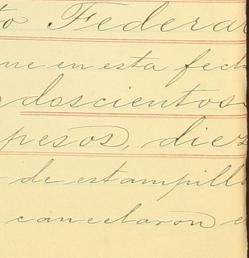 to Federal
ue en esta fech
doscientos
pesos, diez
de estampill
cancelaron e